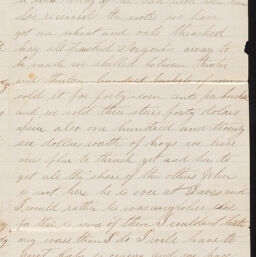 she received the notes we have
got our wheat and oats thrashed
hay all stacked Sorgum away to
be made we shelled between twelve
and thirteen hundred bushels of corn
sold it for forty seven cts pr bushel
and we sold three steers forty dollars
apiece also one hundred and twenty
six dollars worth of hogs we have
our flax to thrash yet and has to
get all the share of the others John
is not here he is over at Daves and
I would rather he was anywhere else
for their is none of them I couldent hate
any worse than I do I would have to